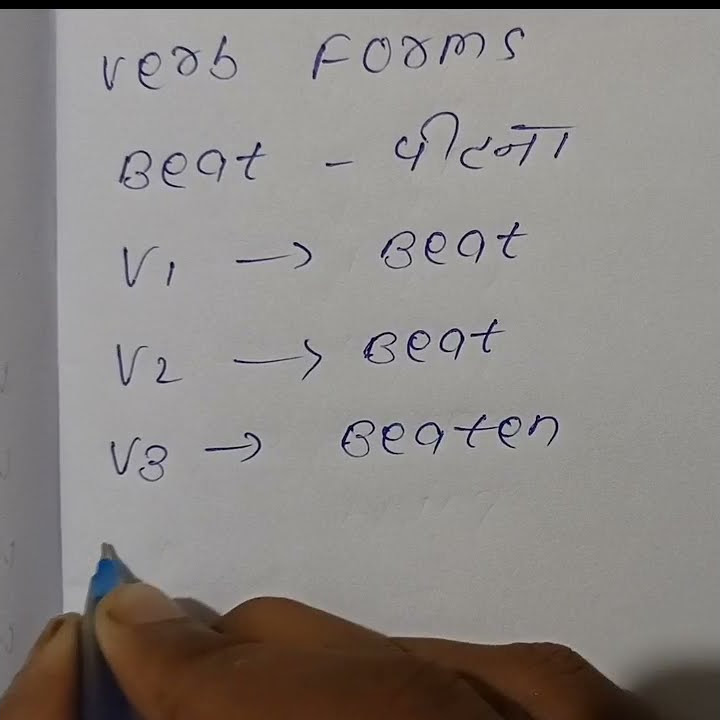 Verb Forms
Beat - पीटना
V1 → Beat
V2 → Beat
V3 → Beaten